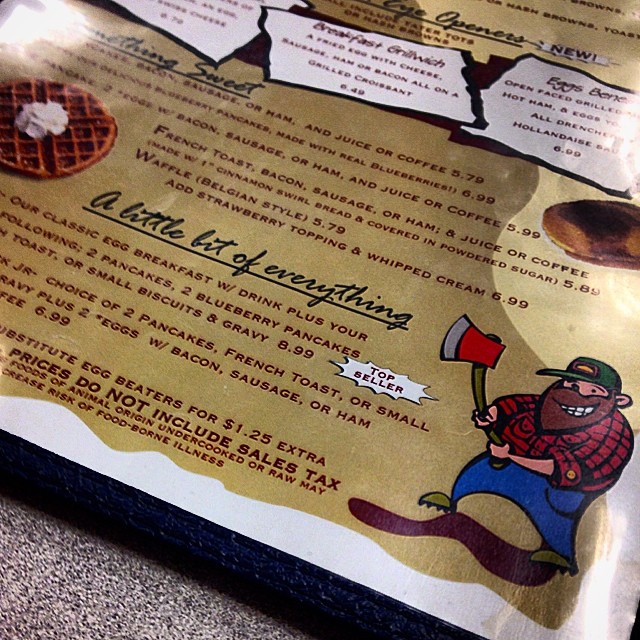 6.79
Eye Openers
OR HASH BROWNS, TOAST
OR HASH BROWN TOTS
NEW!
Breakfast Grillwich
FRIED EGG WITH CHEESE,
SAUSAGE, HAM OR BACON ALL ON A
GRILLED CROISSANT
6.49
Eggs Bene
OPEN FACED GRILLED
HOT HAM, 2 EGGS
ALL DRENCHED
HOLLANDAISE
6.99
Something Sweet
BACON, SAUSAGE, OR HAM, AND JUICE OR COFFEE 5.79
BLUEBERRY PANCAKES, MADE WITH REAL BLUEBERRIES!!
W/ BACON, SAUSAGE, OR HAM, AND JUICE OR COFFEE 6.99
FRENCH TOAST, BACON, SAUSAGE, OR HAM; & JUICE OR COFFEE 5.99
(MADE W/ CINNAMON SWIRL BREAD & COVERED IN POWDERED SUGAR)
WAFFLE (BELGIAN STYLE) 5.79
5.89
ADD STRAWBERRY TOPPING & WHIPPED CREAM 6.99
A little bit of everything
OUR CLASSIC EGG BREAKFAST W/ DRINK PLUS YOUR
FOLLOWING; 2 PANCAKES, 2 BLUEBERRY PANCAKES
TOAST, OR SMALL BISCUITS & GRAVY 8.99
JR- CHOICE OF 2 PANCAKES, FRENCH TOAST, OR SMALL
PLUS 2 *EGGS W/ BACON, SAUSAGE, OR HAM
6.99
TOP
SELLER
SUBSTITUTE EGG BEATERS FOR $1.25 EXTRA
PRICES DO NOT INCLUDE SALES TAX
FOODS OF ANIMAL ORIGIN UNDERCOOKED OR RAW MAY
RISK OF FOOD-BORNE ILLNESS